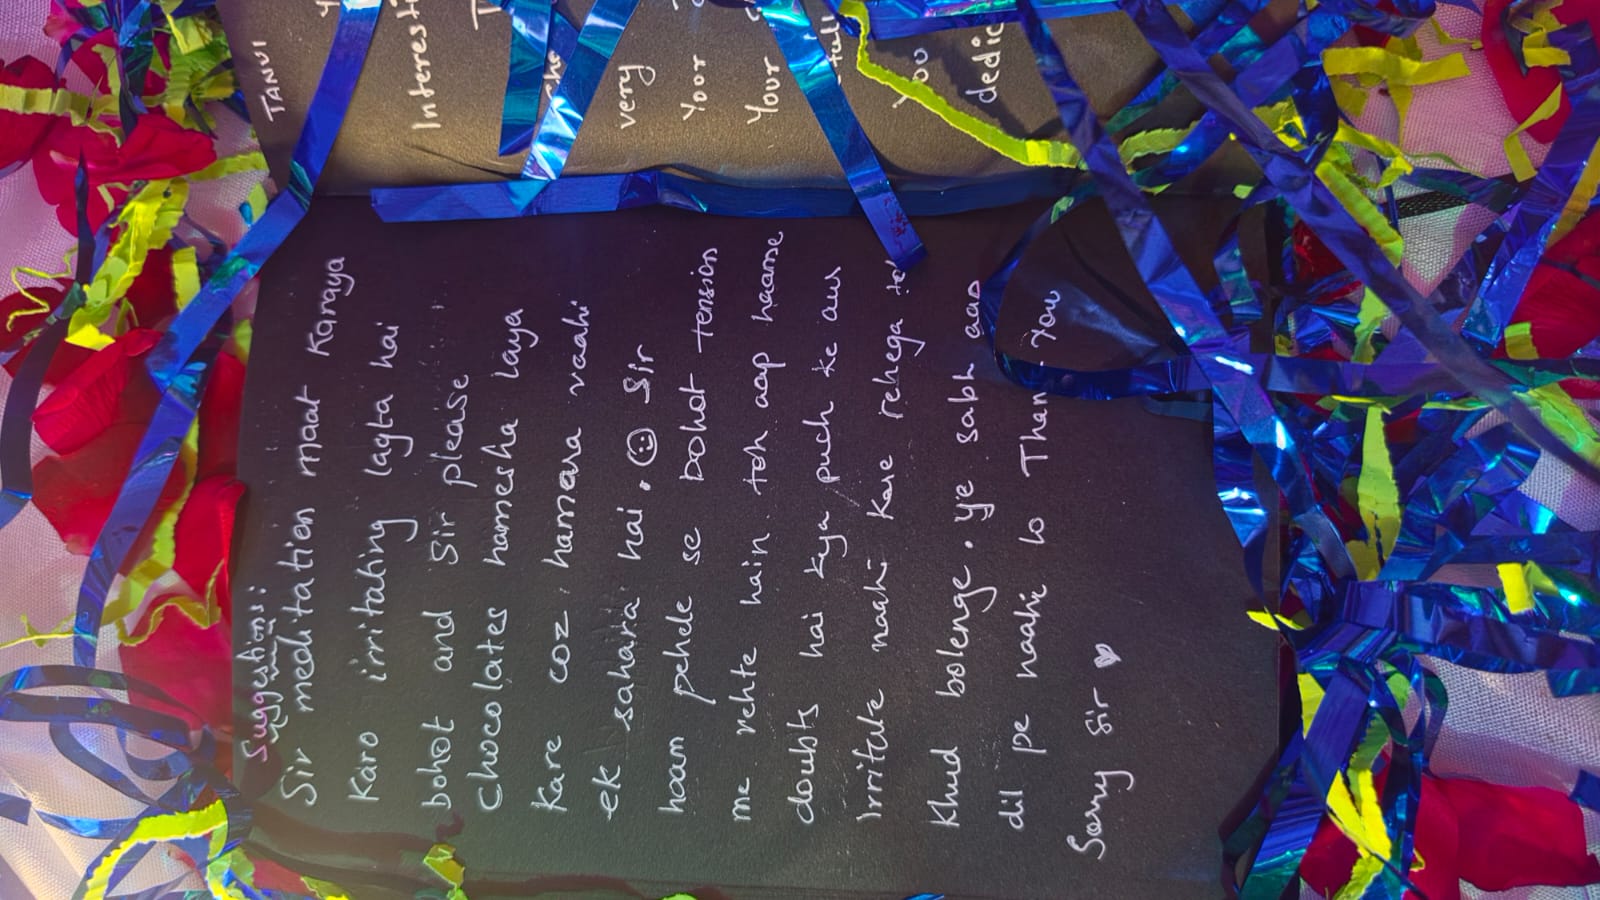 TANVI
Interest
The
very
Your
Your
You
dedic
Suggestions:
Sir meditation maat Karaya
Karo irritating lagta hai
bohot and Sir please
Chocolates hamesha laya
Kare coz hamara vaahi
ek sahara hai. ☺ Sir
haam pehele se bohot tension
me rehte hain toh aap haamse
doubts hai kya puch ke aur
irritate naahi kare rehega toh
Khud bolenge. Ye sabh aap
dil pe naahi lo Thank You
Sorry Sir ♥